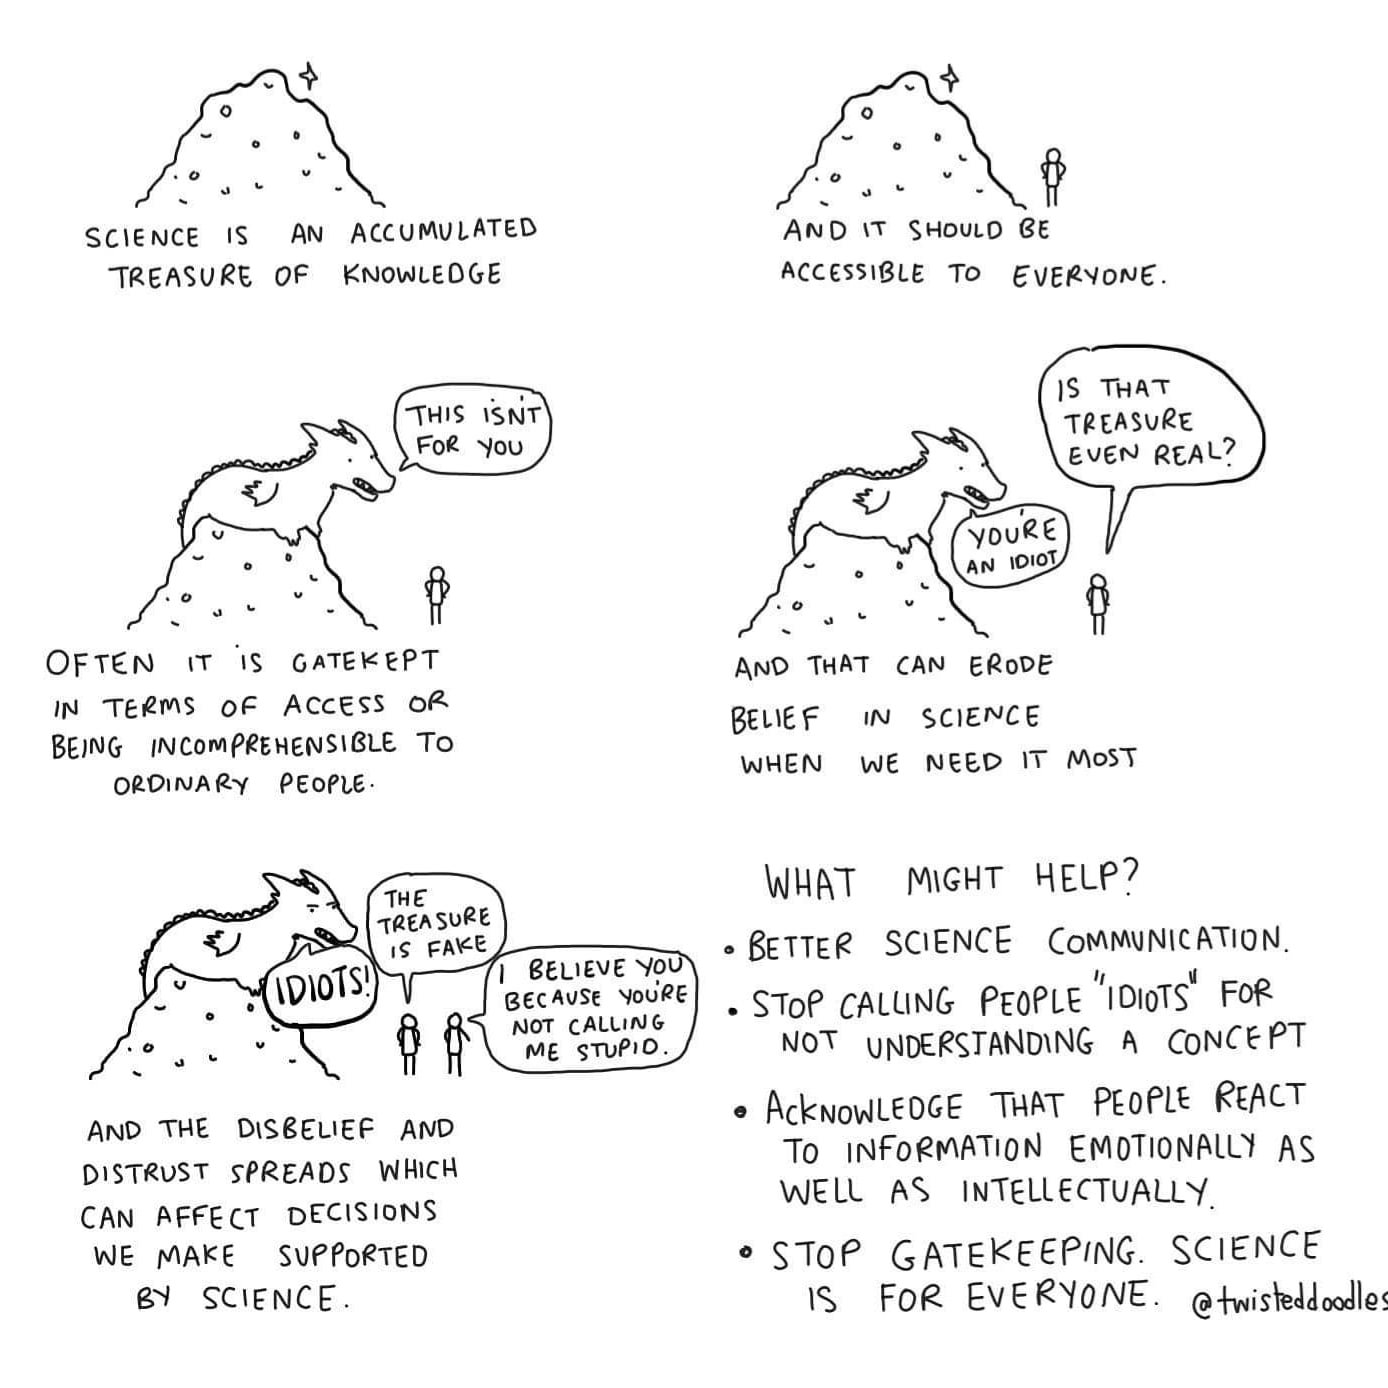 SCIENCE IS AN ACCUMULATED
TREASURE OF KNOWLEDGE
AND IT SHOULD BE
ACCESSIBLE TO EVERYONE.
THIS ISN'T
FOR YOU
OFTEN IT IS GATEKEPT
IN TERMS OF ACCESS OR
BEING INCOMPREHENSIBLE TO
ORDINARY PEOPLE.
IS THAT
TREASURE
EVEN REAL?
YOU'RE
AN IDIOT
AND THAT CAN ERODE
BELIEF IN SCIENCE
WHEN WE NEED IT MOST
IDIOTS!
THE
TREASURE
IS FAKE
I BELIEVE YOU
BECAUSE YOU'RE
NOT CALLING
ME STUPID.
AND THE DISBELIEF AND
DISTRUST SPREADS WHICH
CAN AFFECT DECISIONS
WE MAKE SUPPORTED
BY SCIENCE.
WHAT MIGHT HELP?
• BETTER SCIENCE COMMUNICATION.
• STOP CALLING PEOPLE "IDIOTS" FOR
NOT UNDERSTANDING A CONCEPT
• ACKNOWLEDGE THAT PEOPLE REACT
TO INFORMATION EMOTIONALLY AS
WELL AS INTELLECTUALLY.
• STOP GATEKEEPING. SCIENCE
IS FOR EVERYONE. @twisteddoodles